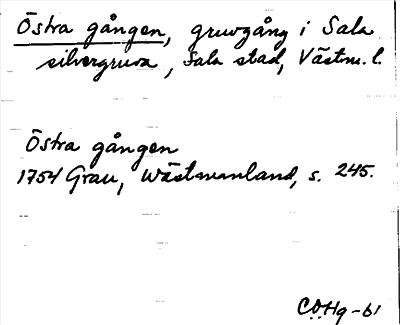 Östra gången, gruvgång i Sala
silvergruva, Sala stad, Västm. l.
Östra gången
1754 Grau, Wästmanland, s. 245.
C.O.Hg -61